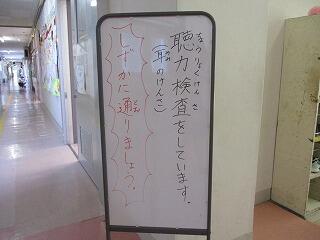 聴力検査をしています。
ちょうりょくけんさ
(耳のけんさ)
みみ
しずかに通りましょう。
とお